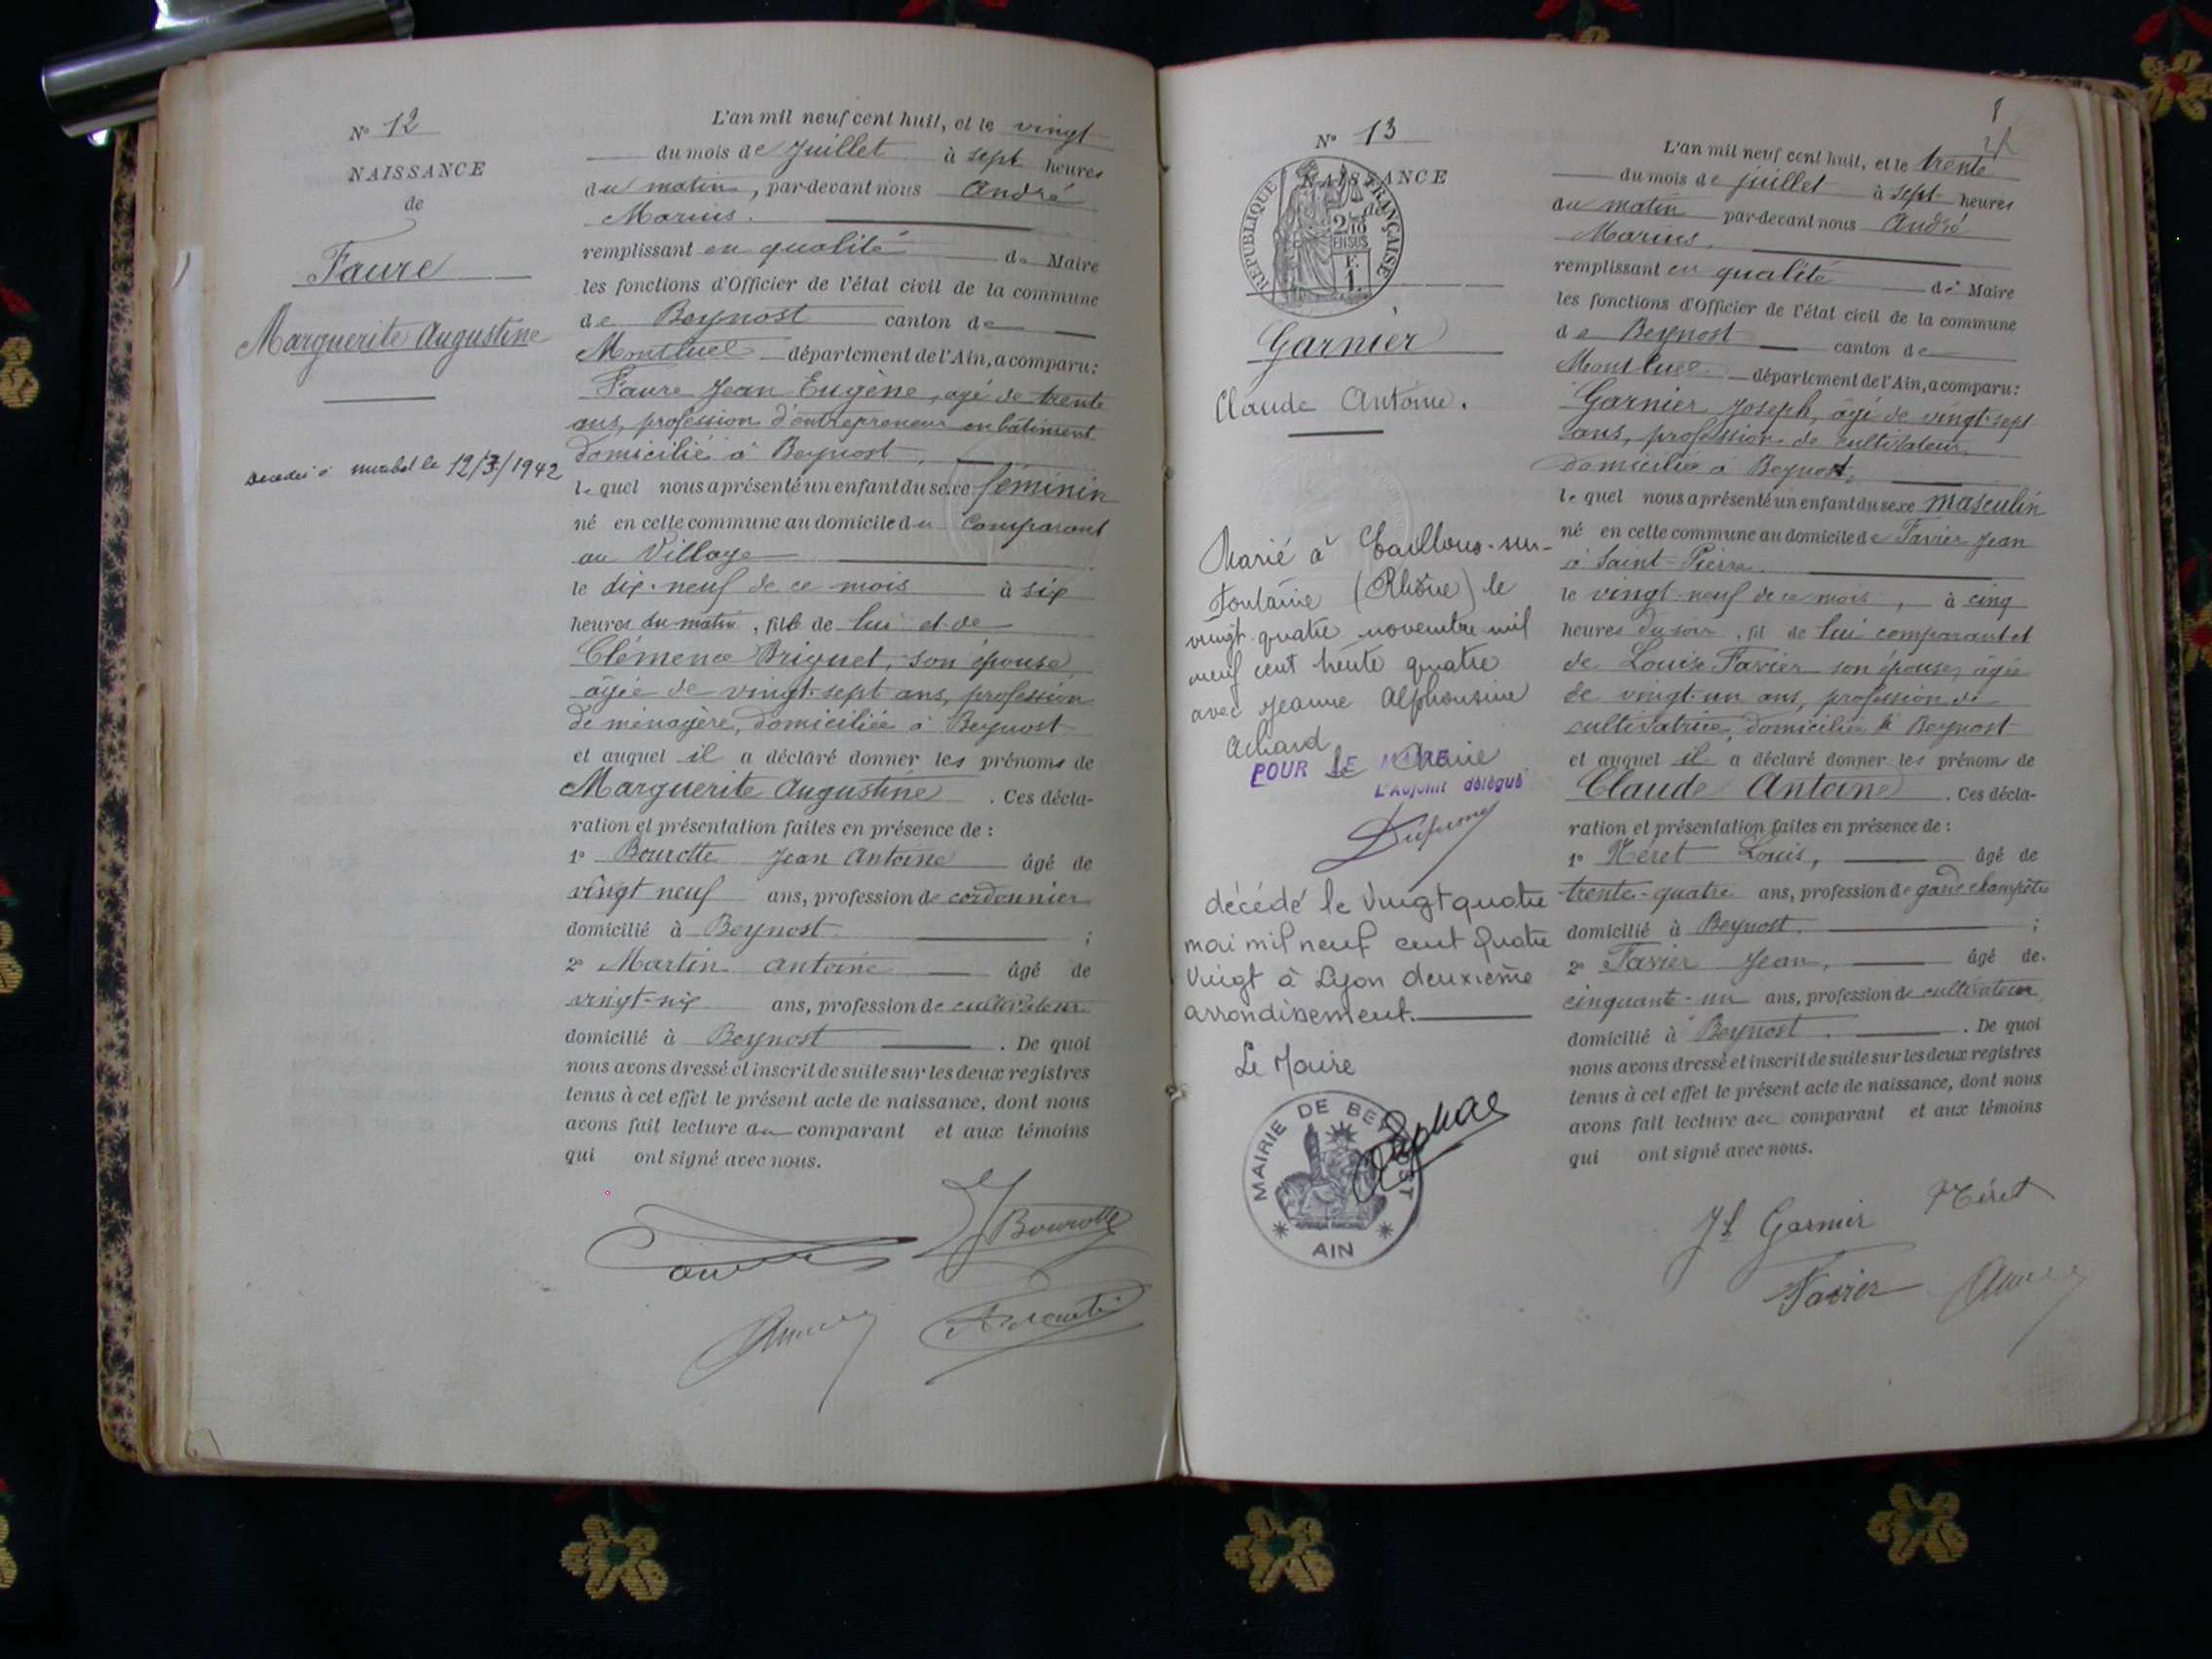 N° 12
NAISSANCE
de
Faure
Marguerite Augustine
12/3/1942
L'an mil neuf cent huit, et le vingt
du mois de Juillet à sept heures
du matin, par-devant nous André
Marius.
remplissant en qualité de Maire
les fonctions d'Officier de l'état civil de la commune
de Beynost canton de
Montluel département de l'Ain, a comparu:
Faure Jean Eugène, agé de trente
ans, profession d'entrepreneur en bâtiment
domicilié à Beynost,
lequel nous a présenté un enfant du sexe féminin
né en cette commune au domicile du Comparant
au Village
le dix-neuf de ce mois à six
heures du matin, fille de lui et de
Clémence Briguet, son épouse
âgée de vingt-sept ans, profession
de ménagère, domiciliée à Beynost
et auquel il a déclaré donner les prénoms de
Marguerite Augustine. Ces décla-
ration et présentation faites en présence de :
1° Bourotte Jean Antoine âgé de
vingt neuf ans, profession de cordonnier
domicilié à Beynost ;
2° Martin Antoine âgé de
vingt-six ans, profession de cultivateur
domicilié à Beynost. De quoi
nous avons dressé et inscrit de suite sur les deux registres
tenus à cet effet le présent acte de naissance, dont nous
avons fait lecture au comparant et aux témoins
qui ont signé avec nous.
Bourotte
8
N° 13
NAISSANCE
de
REPUBLIQUE FRANÇAISE
2/10
EN SUS
F.
1.
Garnier
Claude Antoine.
Marié à Cailloux-sur-
Fontaine (Rhône) le
vingt-quatre novembre mil
neuf cent trente quatre
avec Jeanne Alphonsine
Achard
Le Maire
POUR LE MAIRE
L'Adjoint délégué
décédé le Vingt quatre
mai mil neuf cent Quatre
Vingt à Lyon deuxième
arrondissement.
Le Maire
MAIRIE DE BEYNOST
AIN
L'an mil neuf cent huit, et le trente
du mois de juillet à sept heures
du matin par-devant nous André
Marius.
remplissant en qualité de Maire
les fonctions d'Officier de l'état civil de la commune
de Beynost canton de
Montluel département de l'Ain, a comparu:
Garnier Joseph, âgé de vingt-sept
ans, profession de cultivateur,
domicilié à Beynost,
lequel nous a présenté un enfant du sexe masculin
né en cette commune au domicile de Favier Jean
à Saint-Pierre.
le vingt-neuf de ce mois, à cinq
heures du soir, fil de lui comparant et
de Louise Favier son épouse, âgée
de vingt-un ans, profession de
cultivatrice, domiciliée à Beynost
et auquel il a déclaré donner les prénoms de
Claude Antoine. Ces décla-
ration et présentation faites en présence de :
1° Néret Louis, âgé de
trente-quatre ans, profession de garde champêtre
domicilié à Beynost, ;
2° Favier Jean, âgé de
cinquante-un ans, profession de cultivateur
domicilié à Beynost. De quoi
nous avons dressé et inscrit de suite sur les deux registres
tenus à cet effet le présent acte de naissance, dont nous
avons fait lecture au comparant et aux témoins
qui ont signé avec nous.
Jh Garnier Néret
Favier